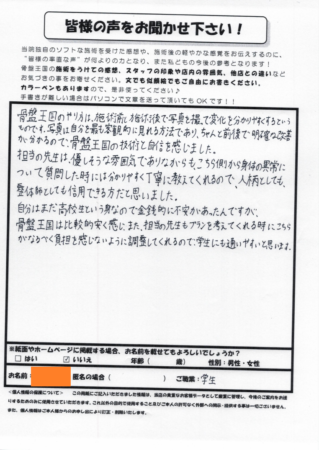 皆様の声をお聞かせ下さい！
当院独自のソフトな施術を受けた感想や、施術後の軽やかな感覚をお伝えするのに、
"皆様の率直な声"が何よりの力となり、また私どもの今後の参考となります！
骨盤王国の施術をうけての感想、スタッフの印象や店内の雰囲気、他店との違いなど
お気づきの事をお寄せください。文でも似顔絵でもご自由にお書きください。
カラーペンもありますので、是非使ってください♪
手書きが難しい場合はパソコンで文章を送って頂いてもOKです！！
骨盤王国のやり方は、施術前と施術後で写真を撮って変化を分かりやすくするという
ものです。写真は自分を最も客観的に見れる方法であり、ちゃんと前後で明確な改善
が分かるので、骨盤王国の技術と自信を感じました。
担当の先生は、優しそうな雰囲気でありながらもこちら側から身体の異常に
ついて質問した時には分かりやすく丁寧に教えてくれるので、人柄としても、
整体師としても信用できる方だと思いました。
自分はまだ高校生という身なので金銭的に不安があったんですが、
骨盤王国は比較的安く感じ、また、担当の先生もプランを考えてくれる時にこちら
がなるべく負担を感じないように調整してくれるので、学生にも通いやすいと思います。
※紙面やホームページに掲載する場合、お名前を載せてもよろしいでしょうか？
□はい ☑いいえ 年齢（ 歳） 性別：男性・女性
お名前： 匿名の場合（ ） ご職業：学生